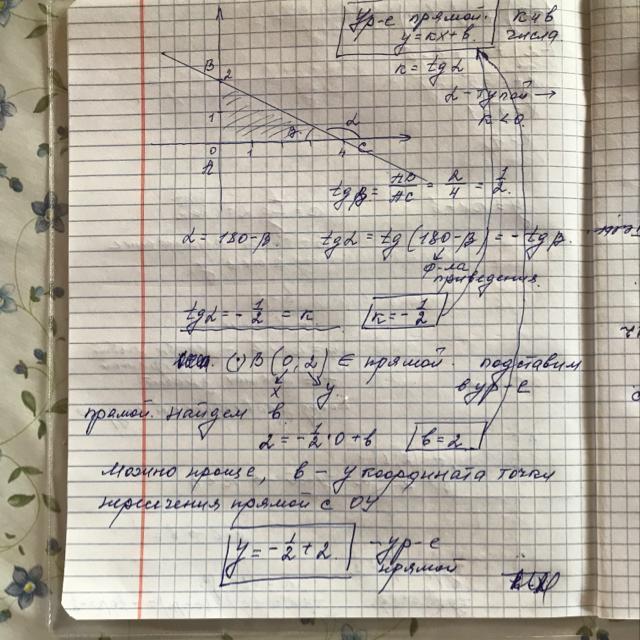 Ур-е прямой. k и b
y = kx + b. числа
k = tg α
α - тупой →
k < 0
B 2
1
β α
0 1 4 C
A
tg β = AB/AC = 2/4 = 1/2.
α = 180 - β. tg α = tg (180 - β) = - tg β.
ф-ла
приведения.
tg α = - 1/2 = k k = - 1/2
(·) B (0, 2) ∈ прямой. подставим
x y в ур-е
прямой. найдем b.
2 = - 1/2 · 0 + b b = 2
Можно проще, b - y координата точки
пересечения прямой с OY
y = - 1/2 + 2. - ур-е
прямой